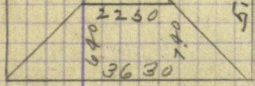 2250
640
740
3630